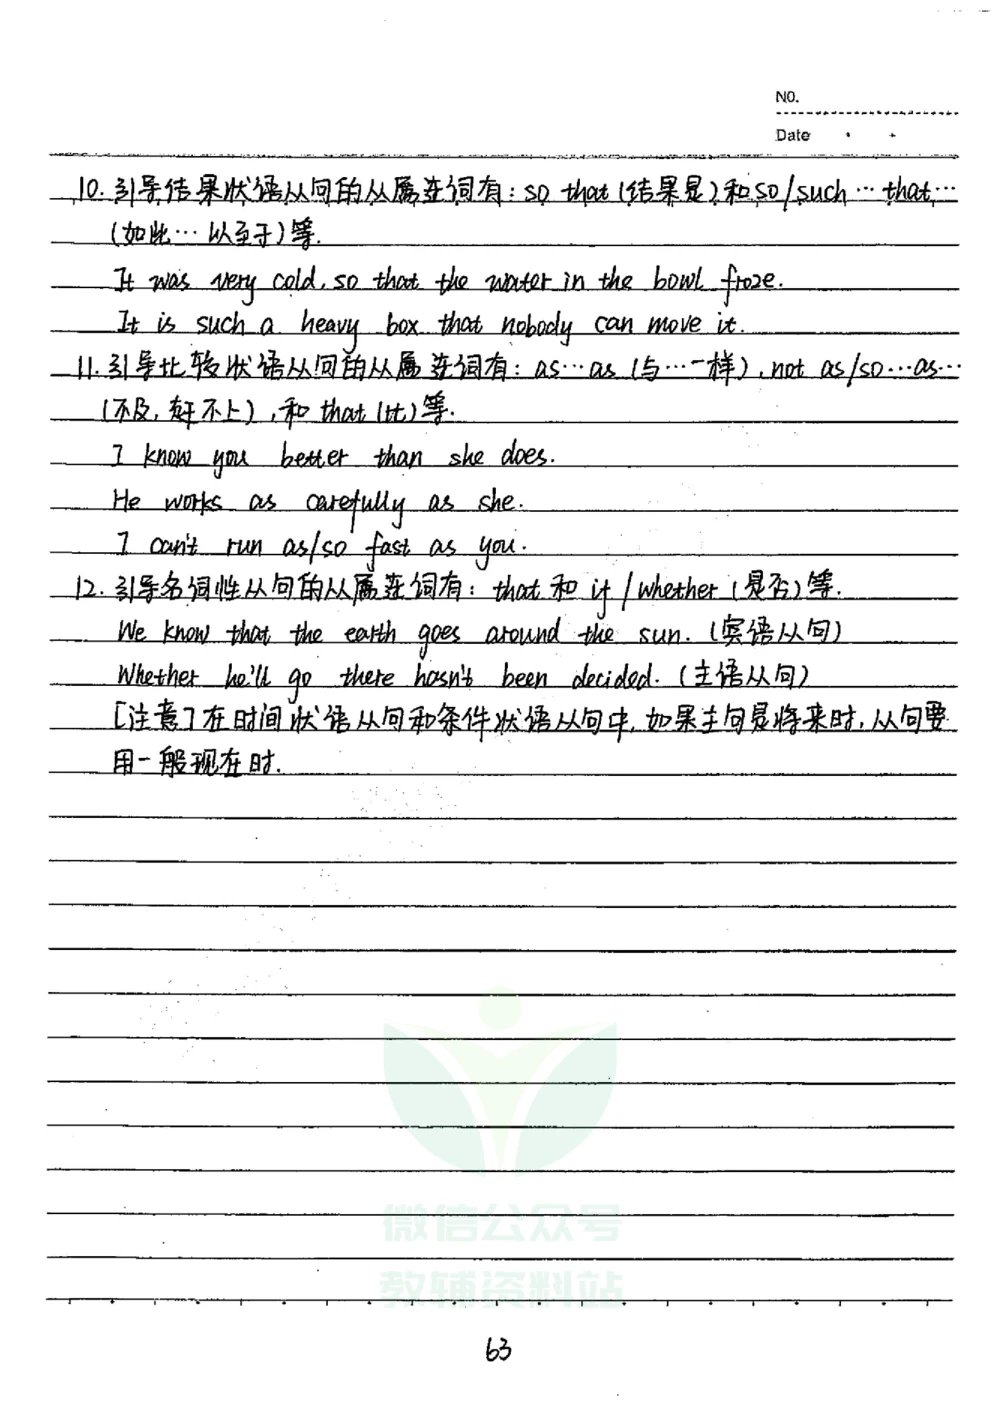 NO.
Date
10. 引导结果状语从句的从属连词有: so that (结果是) 和 so/such … that …
(如此… 以至于) 等.
It was very cold, so that the water in the bowl froze.
It is such a heavy box that nobody can move it.
11. 引导比较状语从句的从属连词有: as … as (与…一样), not as/so … as …
(不及, 赶不上), 和 that (比) 等.
I know you better than she does.
He works as carefully as she.
I can't run as/so fast as you.
12. 引导名词性从句的从属连词有: that 和 if / whether (是否) 等.
We know that the earth goes around the sun. (宾语从句)
Whether he'll go there hasn't been decided. (主语从句)
[注意] 在时间状语从句和条件状语从句中, 如果主句是将来时, 从句要
用一般现在时.
微信公众号
教辅资料站
63